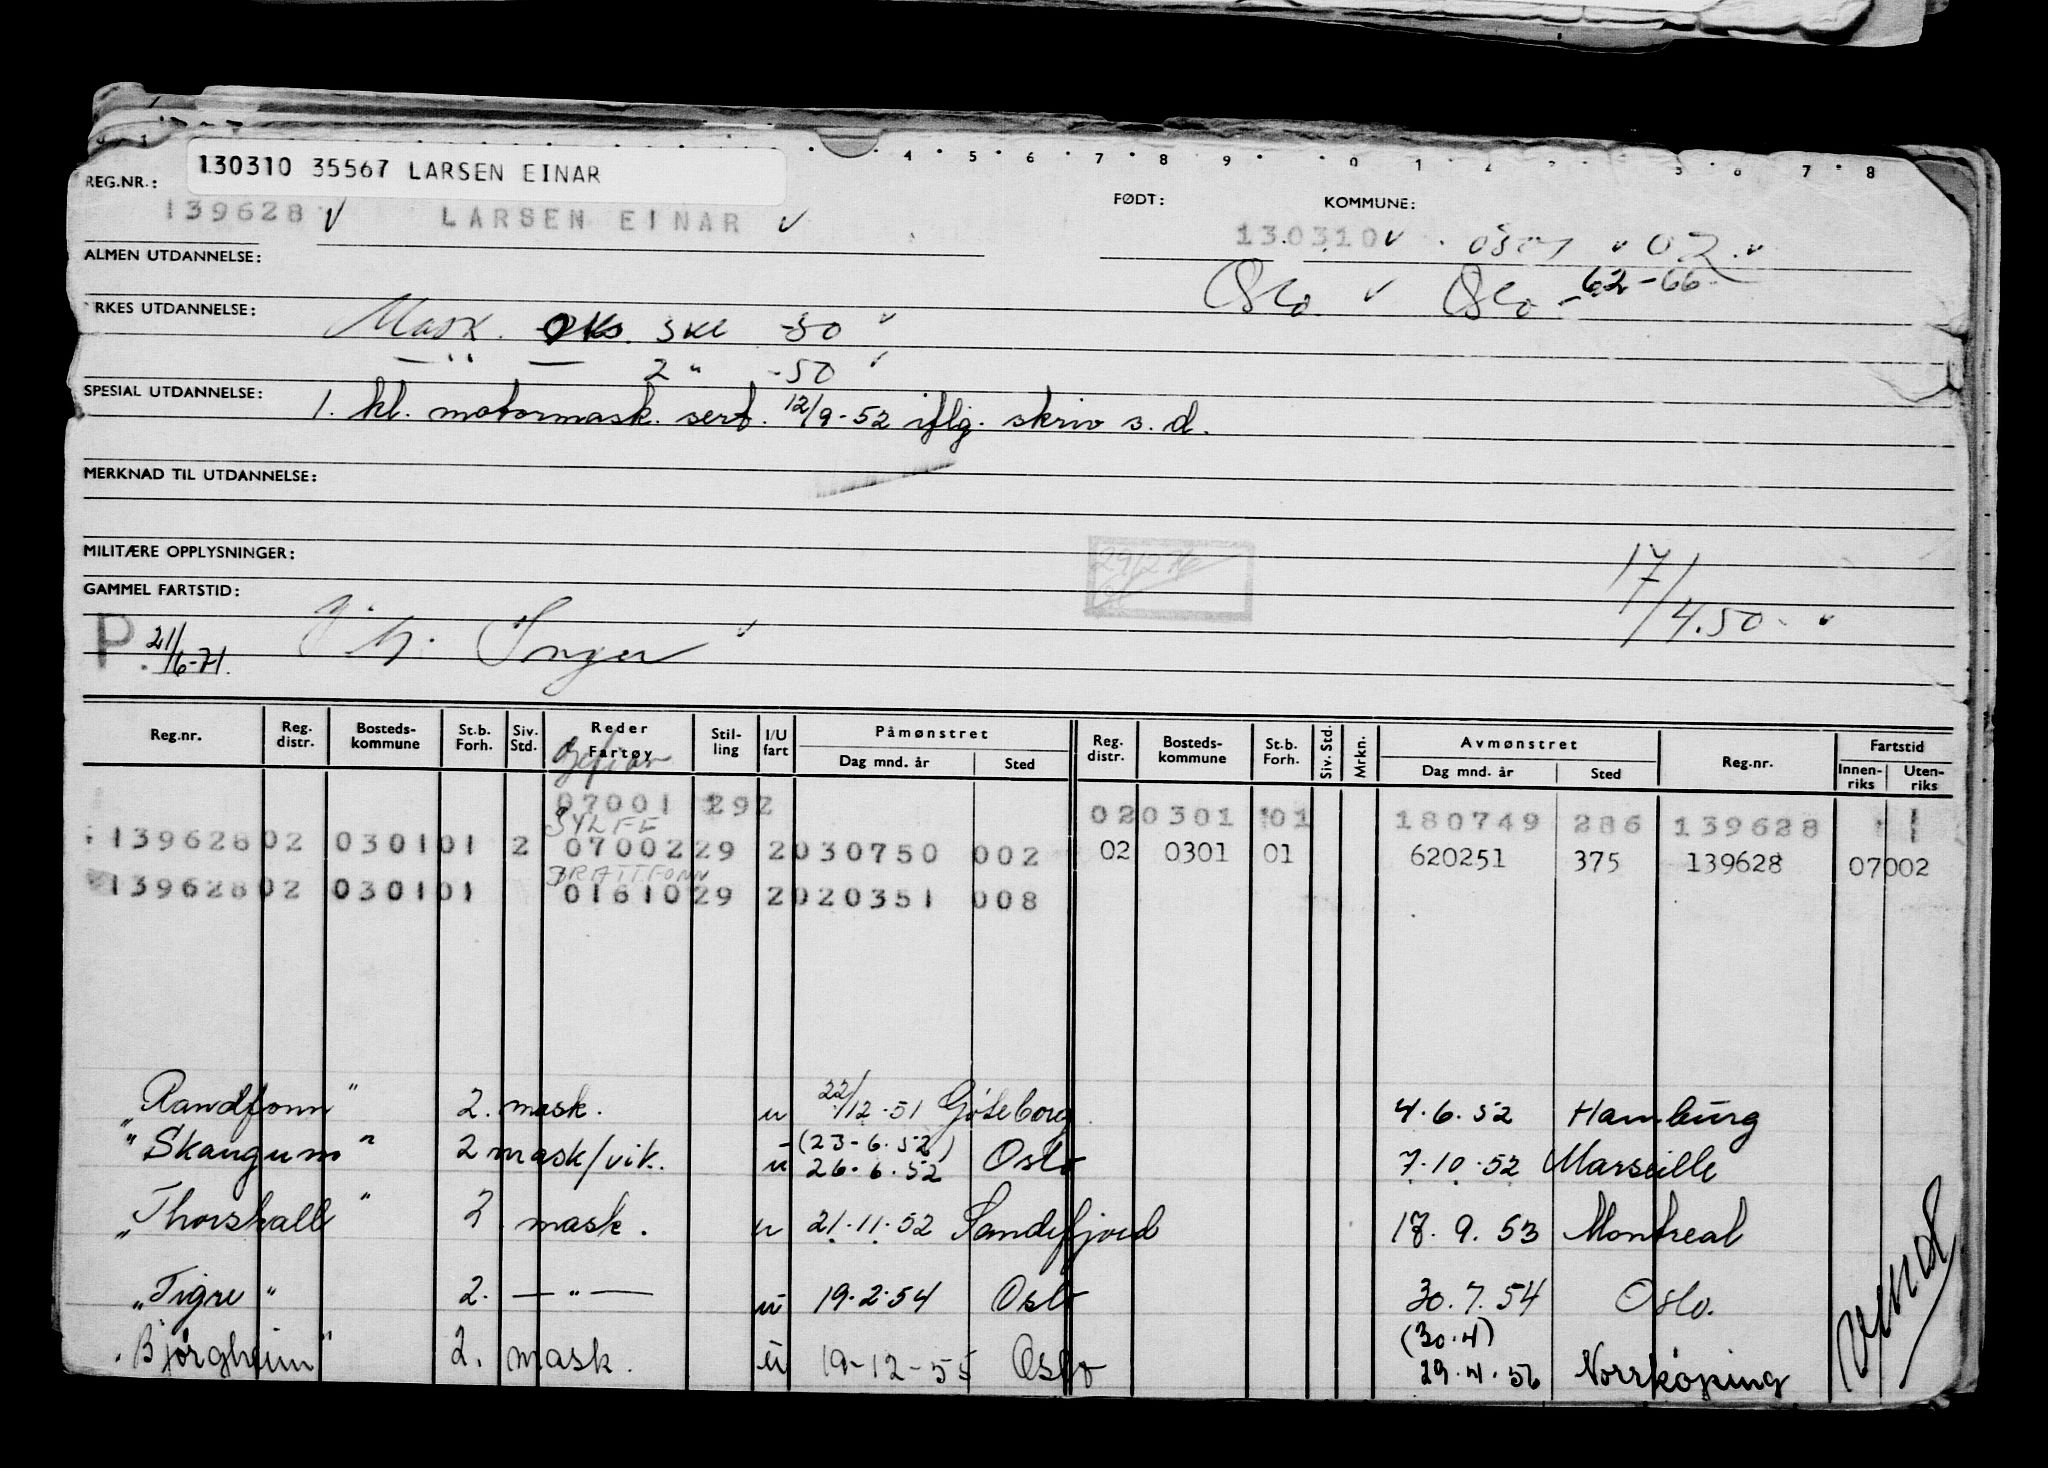 4 5 6 7 8 9 0 1 2 5 6 7 8
130310 35567 LARSEN EINAR
REG.NR.: FØDT: KOMMUNE:
139628 LARSEN EINAR 130310 02
ALMEN UTDANNELSE: Oslo Oslo 62-66
RKES UTDANNELSE: Mask. 3 kl -50
—"— 2 " -50
SPESIAL UTDANNELSE: 1. kl. motormask. sert. 12/9-52 iflg. skriv s. d.
MERKNAD TIL UTDANNELSE:
MILITÆRE OPPLYSNINGER: 17/4.50
GAMMEL FARTSTID:
P. 21/6-71. Inger
Reg.nr. Reg. distr. Bosteds- kommune St.b. Forh. Siv. Std. Reder Fartøy Stil- ling I/U fart Påmønstret Dag mnd. år Sted Reg. distr. Bosteds- kommune St.b. Forh. Siv. Std. Mrkn. Avmønstret Dag mnd. år Sted Reg.nr. Fartstid Innen- riks Uten- riks
Gefion
07001 292 02 0301 01 180749 286 139628
SYLFE
139628 02 0301 01 2 07002 29 2 030750 002 02 0301 01 620251 375 139628 07002
BRATTFONN
139628 02 0301 01 01610 29 2 020351 008
"Randfonn" 2. mask. u 22/12.51 Göteborg 4.6.52 Hamburg
"Skaugum" 2 mask/vik. u (23-6.52) 26.6.52 Oslo 7.10.52 Marseille
"Thorshall" 2 mask. u 21.11.52 Sandefjord 18.9.53 Montreal
"Tigre" 2. —"— u 19.2.54 Oslo 30.7.54 Oslo.
"Bjørgheim" 2. mask. u 19-12-55 Oslo (30.4) 29.4.56 Norrköping
Vend